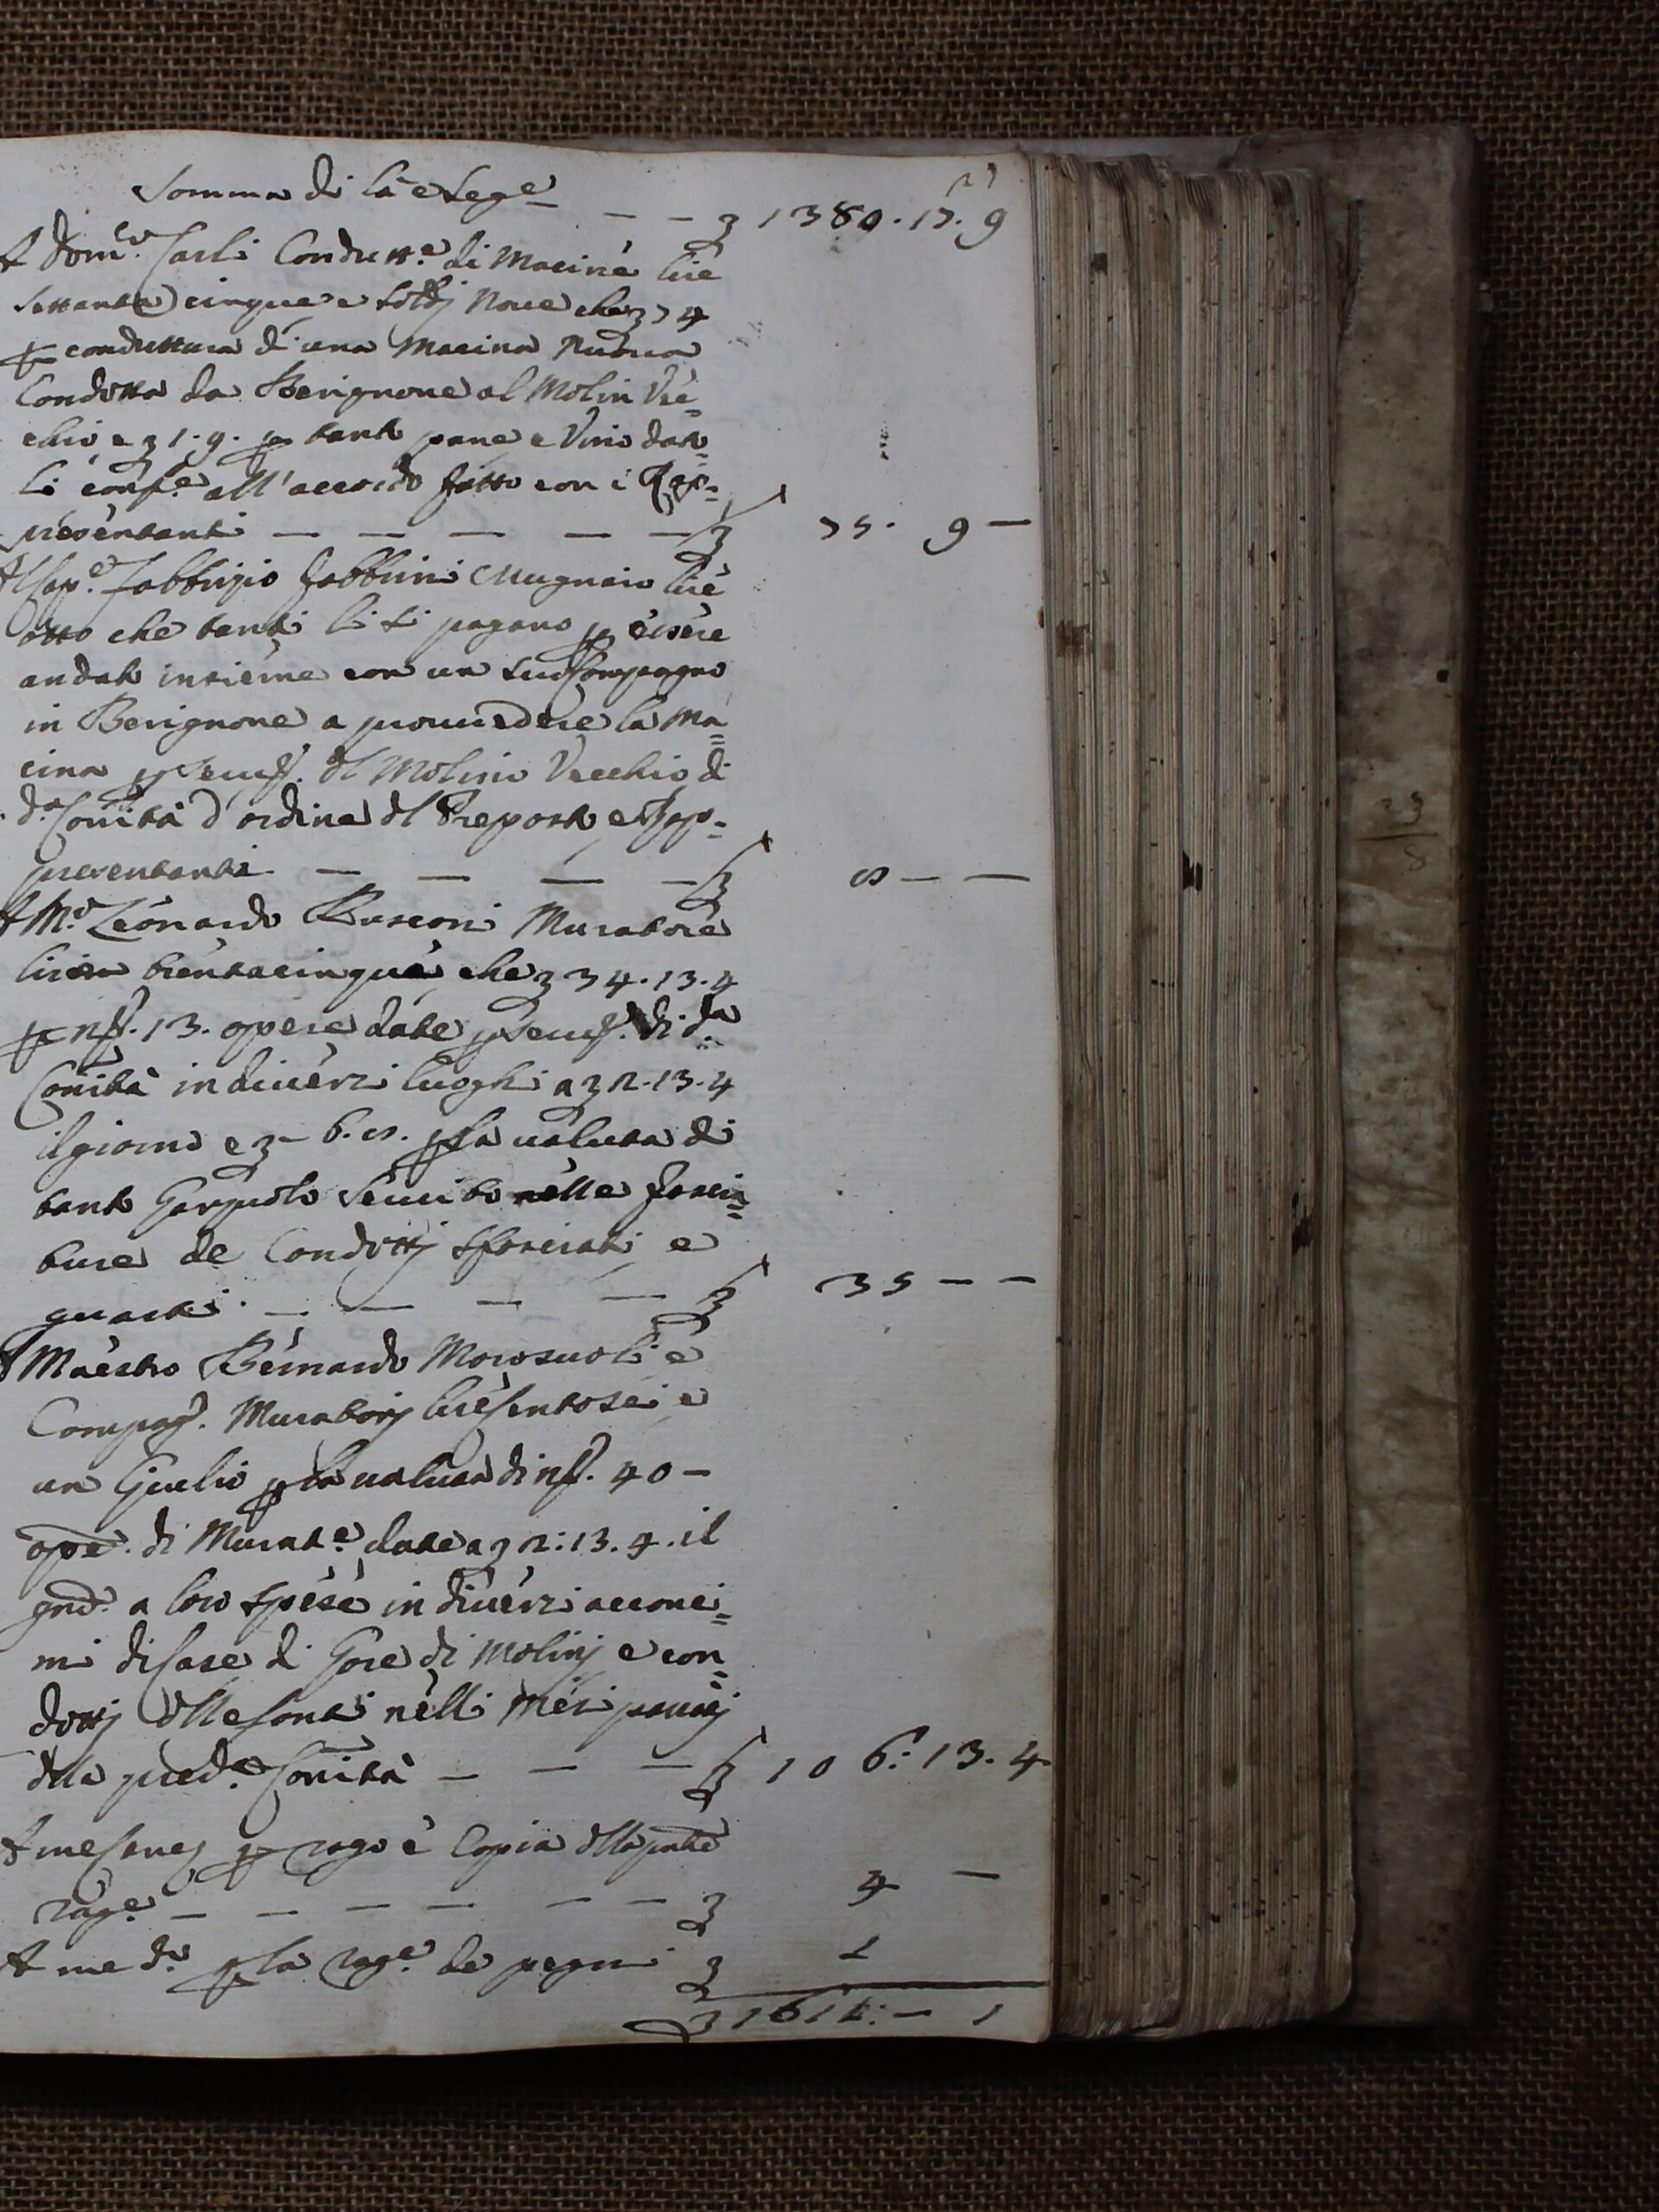 Somma di là e Seg.e — — £ 1380. 17. 9
A Dom.co Carli Condutt.e di Macine lire
settanta cinque e soldj nove che £ 74
p conduttura di una Macina Nuova
Condotta da Berignone al Molin Vec=
chio, e £ 1. 9. p tanto pane e Vino dato=
li conf.e all'accordo fatto con i Rap=
presentanti — — — — — £ 75. 9 —
Al Cap.o Fabbrizio Fabbrini Mugnaio lire
otto che tanti li si pagano p essere
andato insieme con un suo Compagno
in Berignone a provvedere la Ma=
cina p serviz. dl Molino Vecchio di
d.a Comità d'ordine dl Preposto e Rap=
presentanti — — — — £ 8 — —
A M.o Leonardo Busconi Muratore
lire trentacinque che £ 34. 13. 4
p n.o 13. opere date p serviz. di d.a
Comità in diversi luoghi a £ 2. 13. 4
il giorno e £ — 6. 8. p la valuta di
tanto Gesso servito nelle
ture de Condottj sfasciati e
guasti. — — — — £ 35 — —
A Maestro Bernardo Morosuoli e
Compag. Muratorj lire Centosei e
un Giulio p la valuta di n.o 40 —
ope. di Murat.e date a £ 2: 13. 4. il
gno. a loro spese in diversi acconci=
mi di Case di Gore di Molinj e con=
dottj dlle fonti nelli Mesi passatj
dlla pred.a Comità — — — £ 106: 13. 4
A me Canc. p rogo e Copia dlla pnte
rag.e — — — — — — £ 4 —
A me d.o p la rag.e de pegni £ 1
£ 1611: — 1
23
8